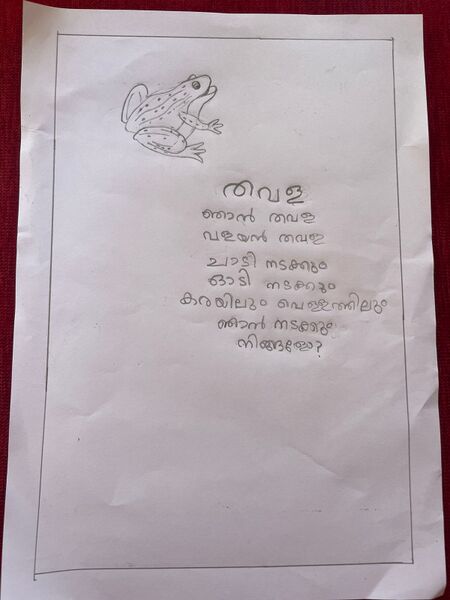 തവള
ഞാൻ തവള
വളയൻ തവള
ചാടി നടക്കും
ഓടി നടക്കും
കരയിലും വെള്ളത്തിലും
ഞാൻ നടക്കും
നിങ്ങളോ?